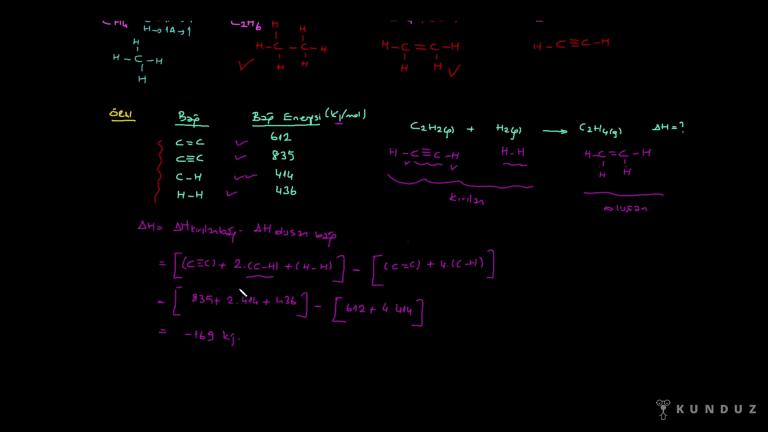 CH4
H→1A→1
C2H6
H
H-C-H
H
H H
H-C-C-H
H H
H-C=C-H
H H
H-C≡C-H
ÖRN
Bağ Bağ Enerjisi (kj/mol)
C=C 612
C≡C 835
C-H 414
H-H 436
C2H2(g) + H2(g) → C2H4(g) ΔH=?
H-C≡C-H H-H H-C=C-H
H H
Kırılan
oluşan
ΔH= ΔHkırılan bağ - ΔHoluşan bağ
= [(C≡C) + 2.(C-H) + (H-H)] - [(C=C) + 4.(C-H)]
= [835 + 2.414 + 436] - [612 + 4.414]
= -169 kj.
KUNDUZ